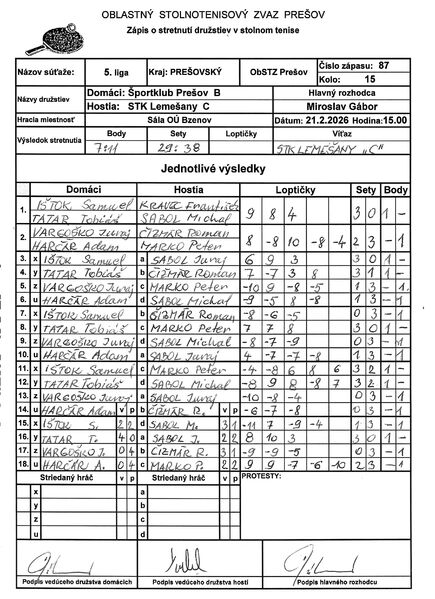 OBLASTNÝ STOLNOTENISOVÝ ZVAZ PREŠOV
Zápis o stretnutí družstiev v stolnom tenise
Názov súťaže: 5. liga Kraj: PREŠOVSKÝ ObSTZ Prešov Číslo zápasu: 87
Kolo: 15
Názvy družstiev Domáci: Športklub Prešov B Hlavný rozhodca
Hostia: STK Lemešany C Miroslav Gábor
Hracia miestnosť Sála OÚ Bzenov Dátum: 21.2.2026 Hodina: 15.00
Výsledok stretnutia Body Sety Loptičky Víťaz
7:11 29:38 STK LEMEŠANY "C"
Jednotlivé výsledky
Domáci Hostia Loptičky Sety Body
1. IŠTOK Samuel KRAVEC František 9 8 4 3 0 1 -
TATAR Tobiáš SABOL Michal
2. VARGOŠKO Juraj ČIZMÁR Roman 8 -8 10 -8 -4 2 3 - 1
HARČÁR Adam MARKO Peter
3. x IŠTOK Samuel a SABOL Juraj 6 9 3 3 0 1 -
4. y TATAR Tobiáš b ČIZMÁR Roman 7 -7 3 8 3 1 1 -
5. z VARGOŠKO Juraj c MARKO Peter -10 9 -8 -5 1 3 - 1
6. u HARČÁR Adam d SABOL Michal -9 -5 8 -8 1 3 - 1
7. x IŠTOK Samuel b ČIZMÁR Roman -8 -6 -5 0 3 - 1
8. y TATAR Tobiáš c MARKO Peter 7 7 8 3 0 1 -
9. z VARGOŠKO Juraj d SABOL Michal -8 -7 -9 0 3 - 1
10. u HARČÁR Adam a SABOL Juraj 4 -7 -7 -8 1 3 - 1
11. x IŠTOK Samuel c MARKO Peter -4 -8 6 8 6 3 2 1 -
12. y TATAR Tobiáš d SABOL Michal -8 9 8 -8 7 3 2 1 -
13. z VARGOŠKO Juraj a SABOL Juraj -10 -8 -4 0 3 - 1
14. u HARČÁR Adam v p b ČIZMÁR R. v p -6 -7 -8 0 3 - 1
15. x IŠTOK S. 2 2 d SABOL M. 3 1 -11 7 -9 -4 1 3 - 1
16. y TATAR T. 4 0 a SABOL J. 2 2 8 10 3 3 0 1 -
17. z VARGOŠKO J. 0 4 b ČIZMÁR R. 3 1 -9 -9 -5 0 3 - 1
18. u HARČÁR A. 0 4 c MARKO P. 2 2 9 9 -7 -6 -10 2 3 - 1
Striedaný hráč v p Striedaný hráč v p PROTESTY:
x a
y b
z c
u d
Podpis vedúceho družstva domácich Podpis vedúceho družstva hostí Podpis hlavného rozhodcu